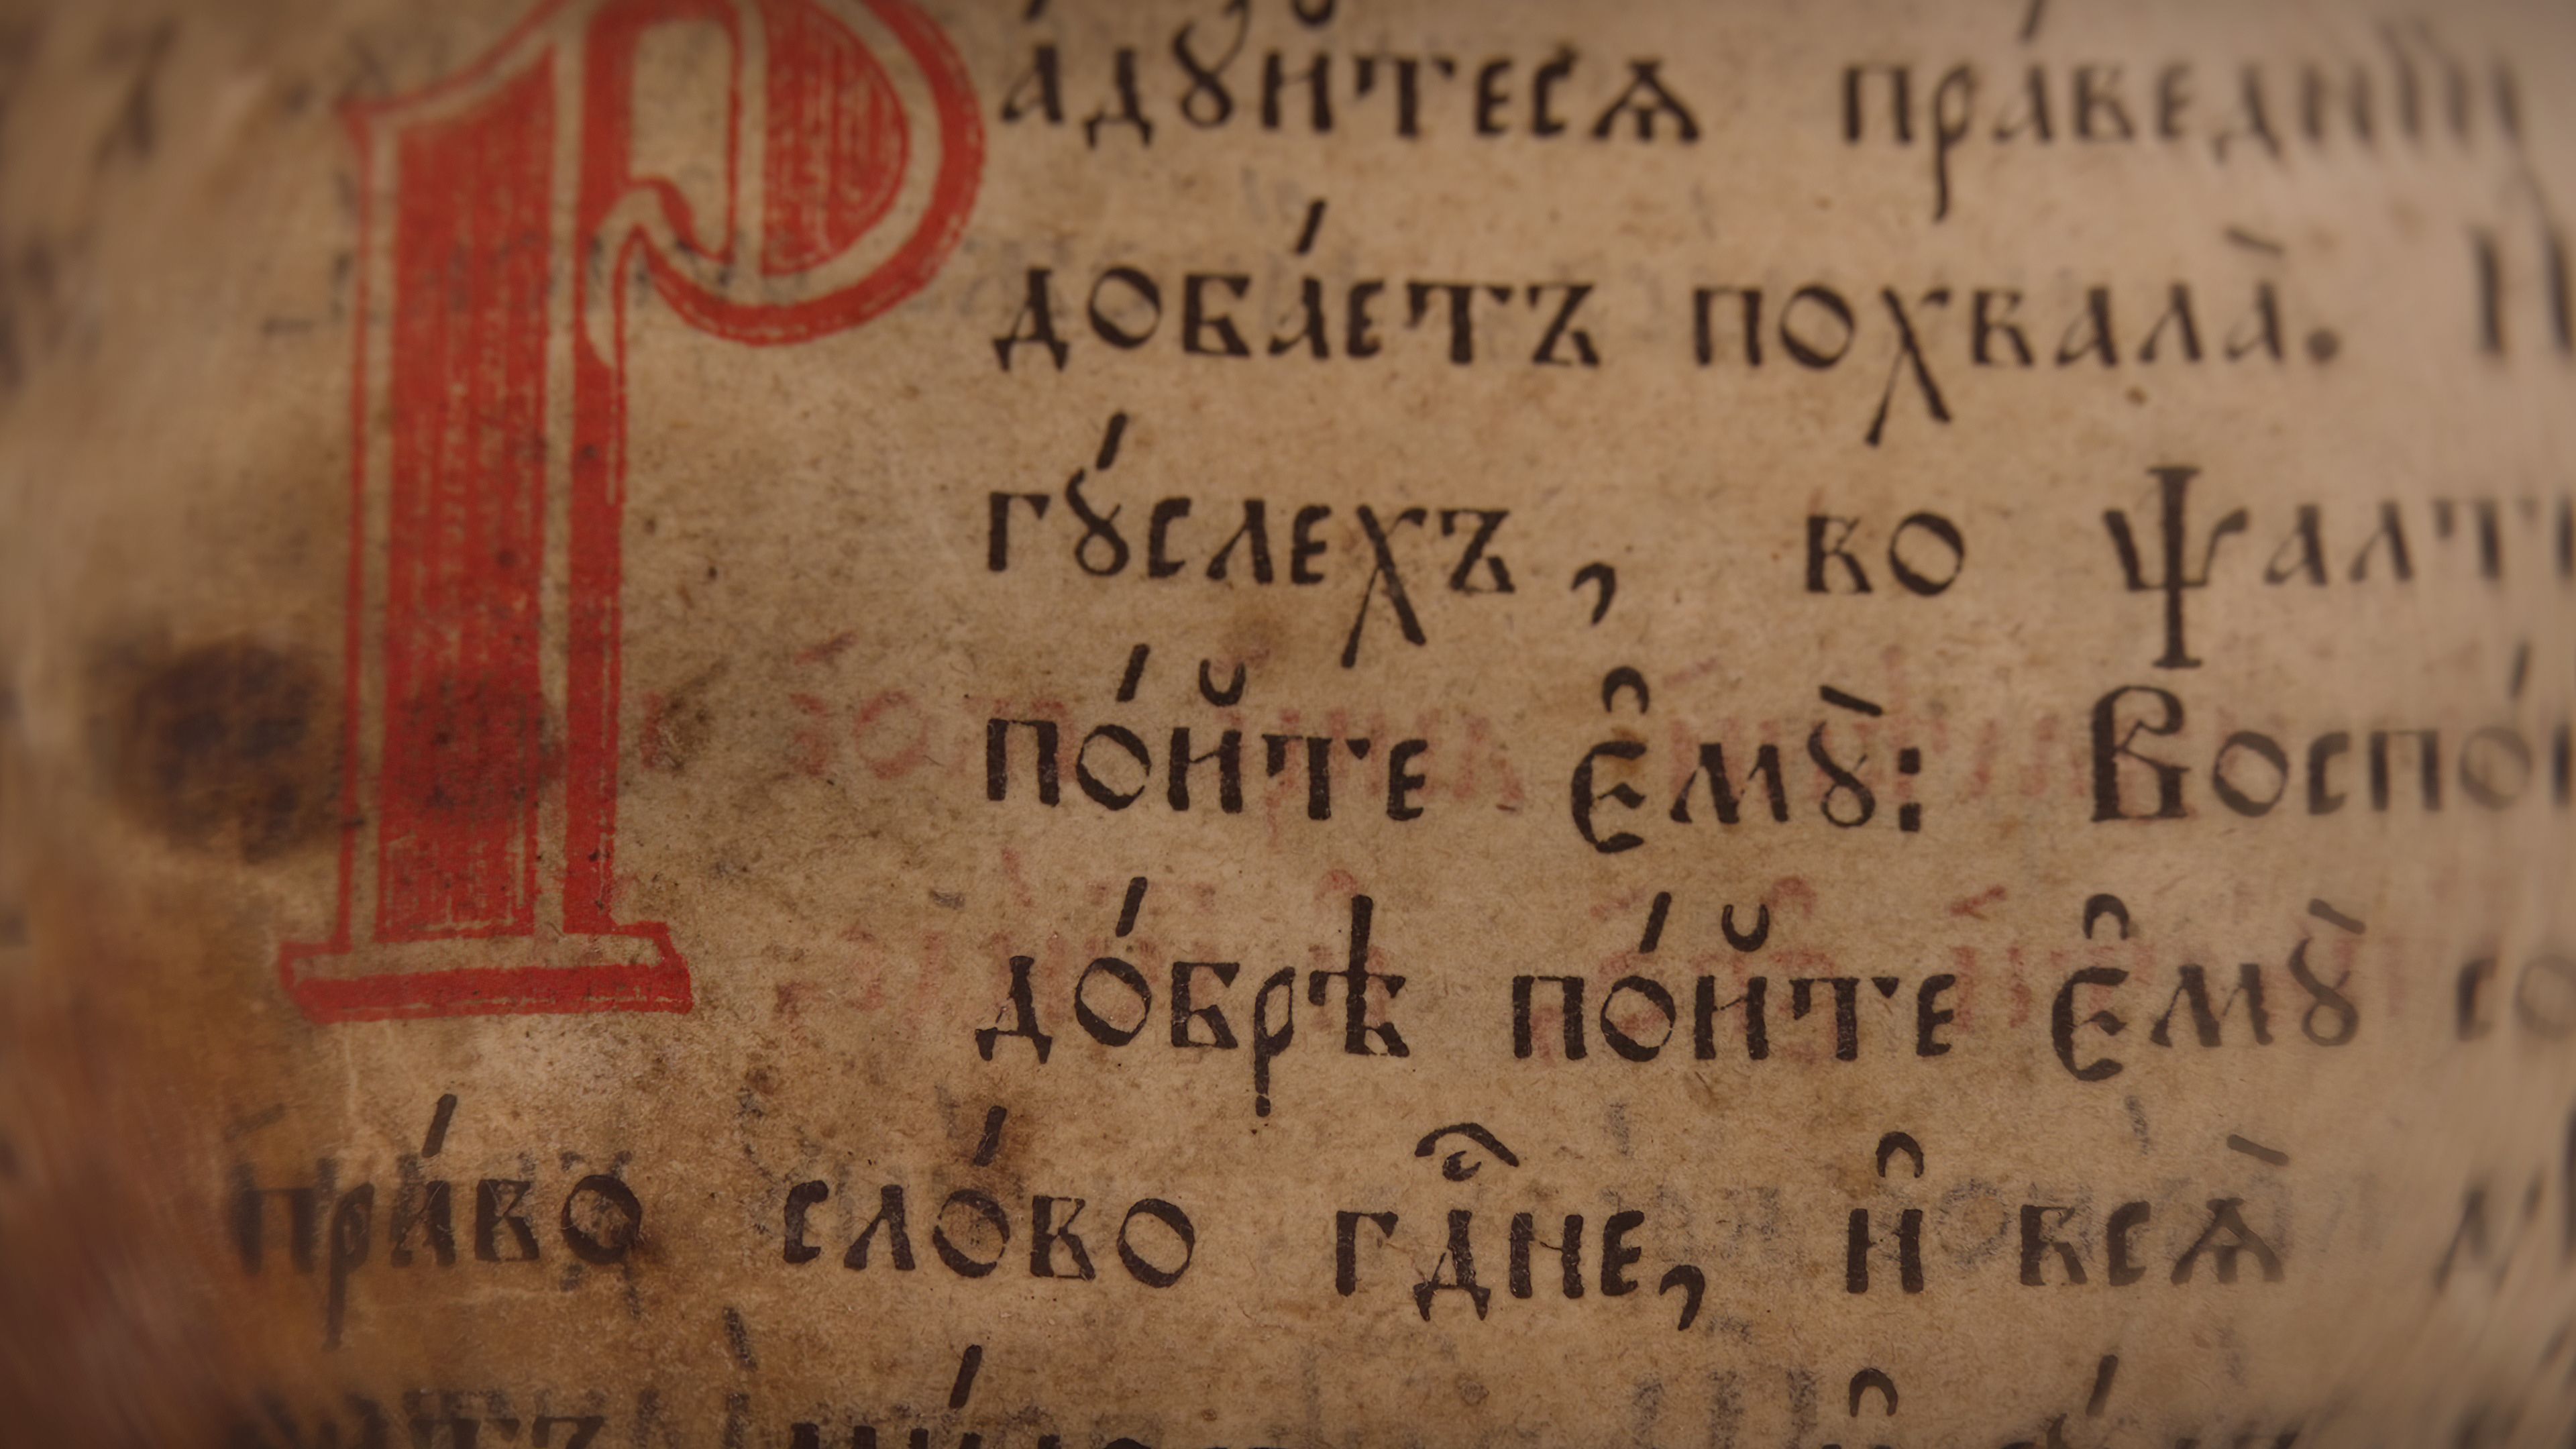 Ра́дꙋйтесѧ пра́веднїи
доба́етъ похвала̀.
гꙋ́слехъ, во
по́йте є҆мꙋ̀:
до́брѣ по́йте є҆мꙋ̀
пра́во сло́во гдⷭ҇не, и҆ всѧ̀